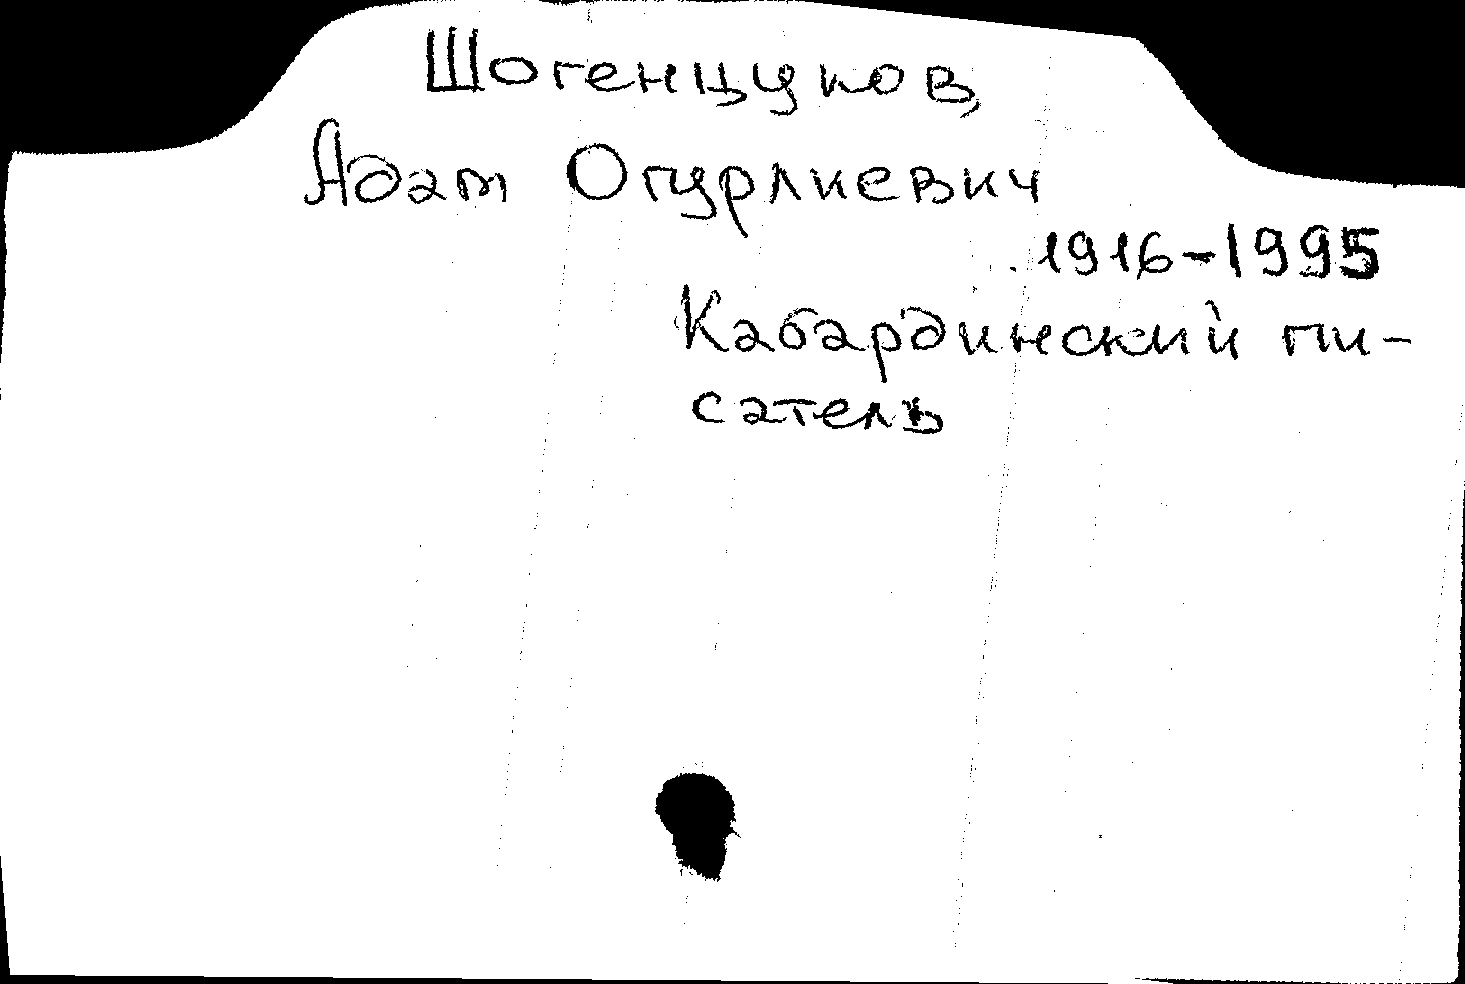 Шогенцуков,
Адам Огурлиевич
1916-1995
Кабардинский пи-
сатель